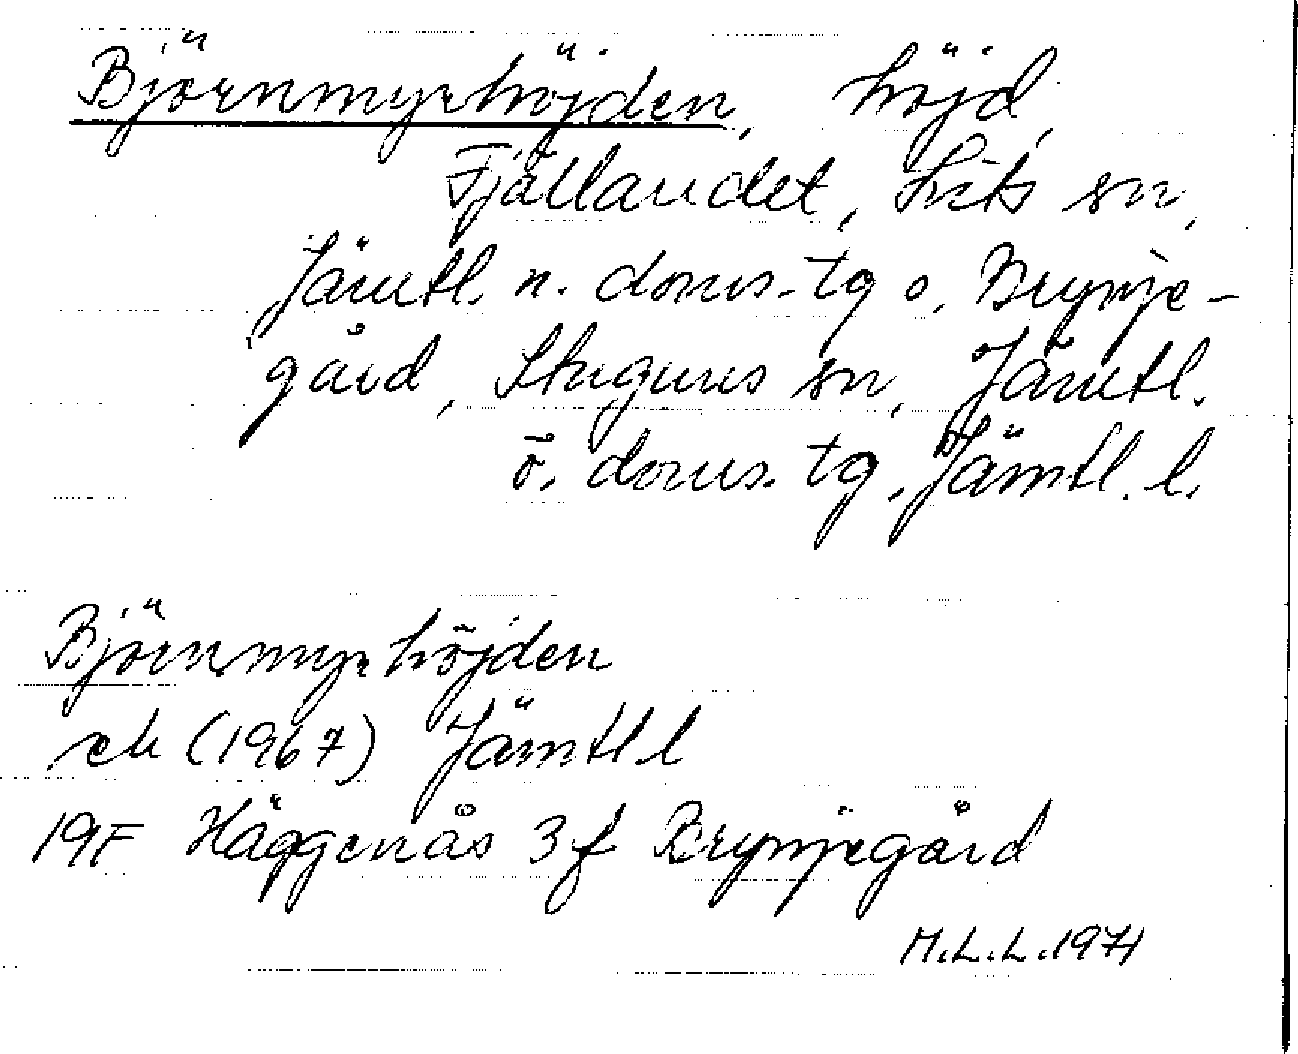 Björnmyrhöjden, höjd,
Fjällandet, Lits sn,
Jämtl. n. doms. tg o. Brynje-
gård, Stuguns sn, Jämtl.
ö. doms. tg, Jämtl. l.
Björnmyrhöjden
ek (1967) Jämtl l
19F Häggenås 3f Brynjegård
M.L.L. 1971